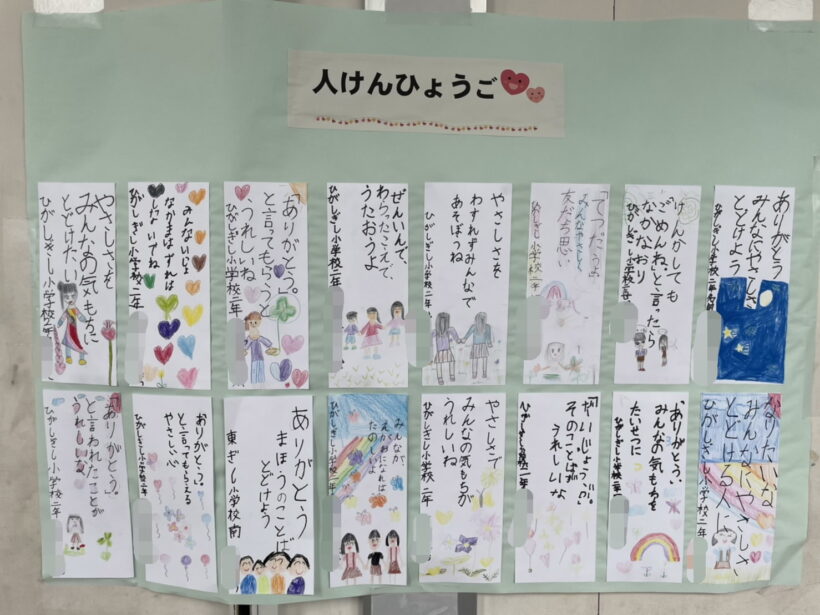 人けんひょうご
ありがとう
みんなにやさしさ
とどけよう
ひがしぎし小学校二年
けんかしても
「ごめんね。」と言ったら
なかなおり
ひがしぎし小学校二年
「てつだうよ」
みんなやさしく
友だち思い
ひがしぎし小学校二年
やさしさを
わすれずみんなで
あそぼうね
ひがしぎし小学校二年
ぜんいんで、
わらったこえで、
うたおうよ
ひがしぎし小学校二年
「ありがとう。」
と言ってもらう
うれしいね
ひがしぎし小学校二年
なかまはずれは
ひがしぎし小学校二年
やさしさを
みんなの気もちに
とどけたい
ひがしぎし小学校二年
なりたいな
みんなにやさしさ
とどける人に
ひがしぎし小学校二年
「ありがとう」
みんなの気もちを
たいせつに
ひがしぎし小学校二年
「だいじょうぶ。」
そのことばが
うれしいな
ひがしぎし小学校二年
やさしさで
みんなの気もちが
うれしいね
ひがしぎし小学校二年
みんなが
えがおになれば
たのしいよ
ありがとう
まほうのことば
とどけよう
東ぎし小学校
ありがとう。
と言ってもらえる
やさしい心
ひがしぎし小学校二年
「ありがとう。」
と言われたことが
うれしいな
ひがしぎし小学校二年